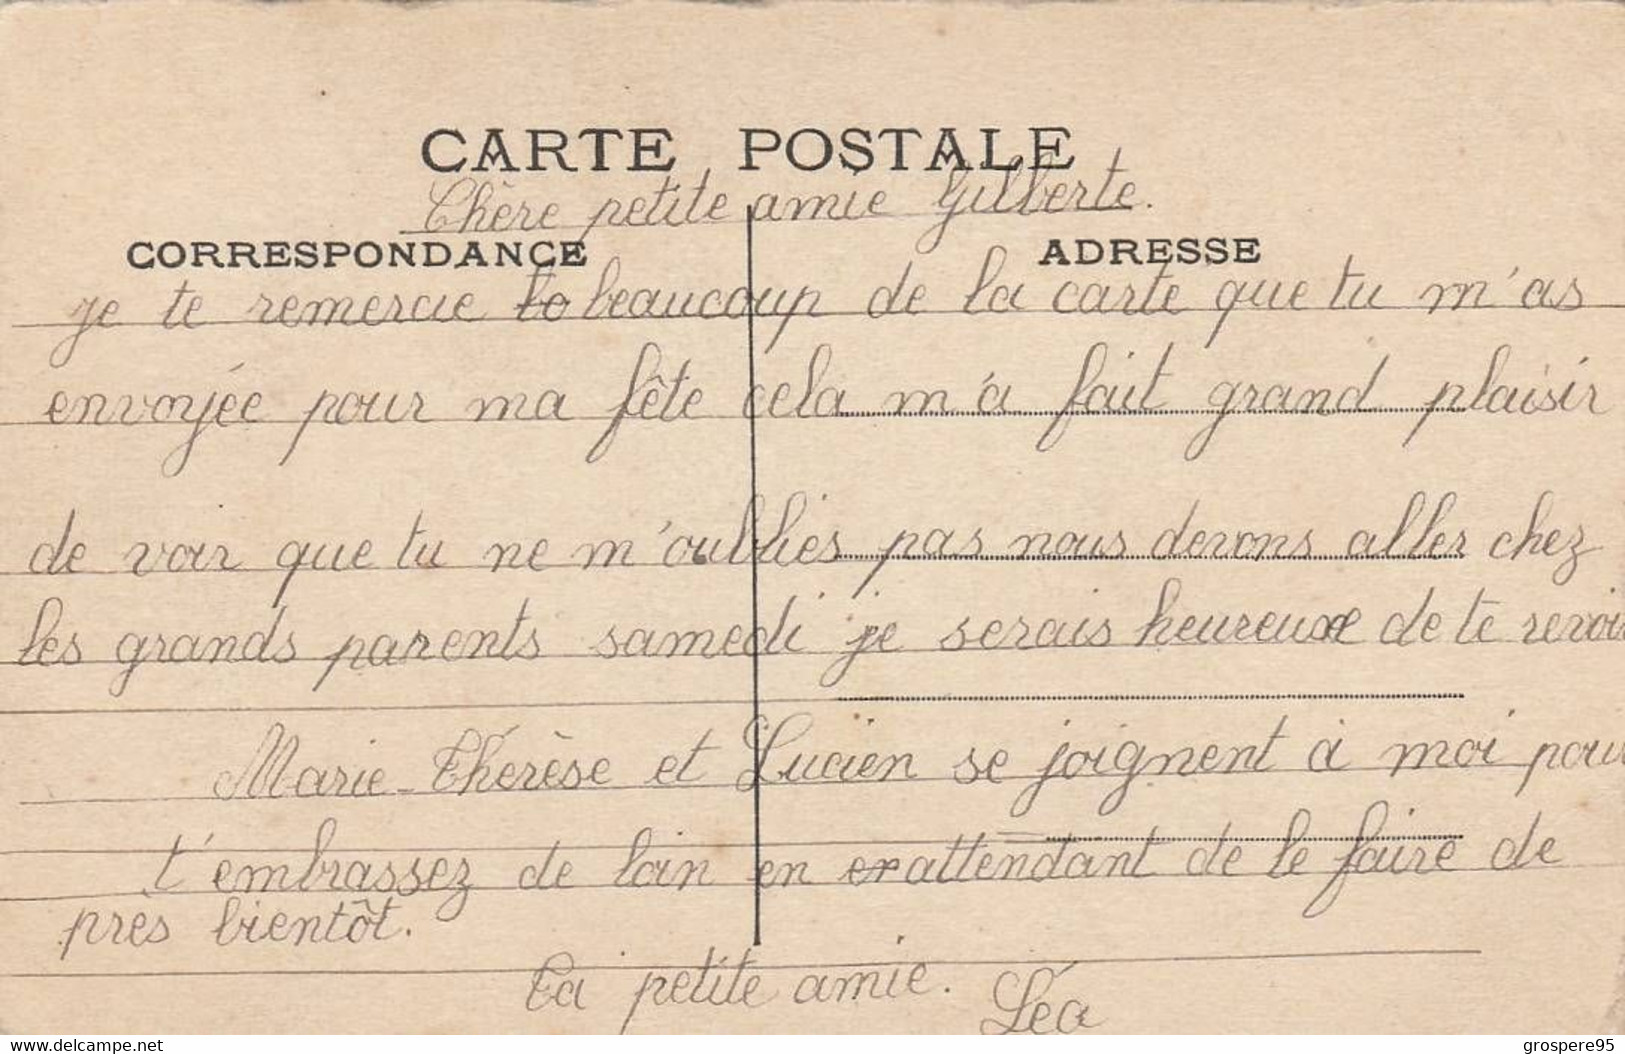 CARTE POSTALE
Chère petite amie Gilberte.
CORRESPONDANCE ADRESSE
je te remercie to beaucoup de la carte que tu m'as
envoyée pour ma fête cela m'a fait grand plaisir
de voir que tu ne m'oublies pas nous devons aller chez
les grands parents samedi je serais heureuse de te revoir
Marie-Thérèse et Lucien se joignent à moi pour
t'embrassez de loin en erattendant de le faire de
près bientôt.
Ta petite amie.
Léa
delcampe.net
grospere95